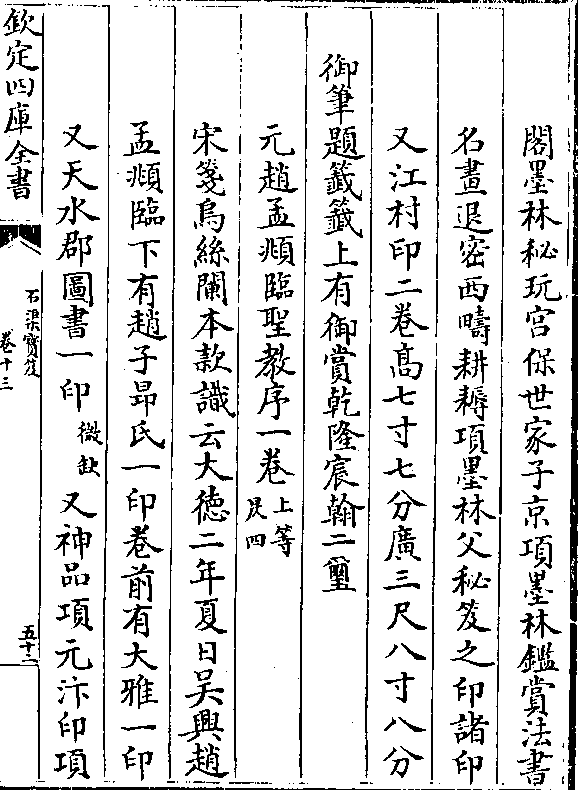 閣墨林秘玩宫保世家子京項墨林鑑賞法書
名畫退密西疇耕耨項墨林父秘笈之印諸印
又江村印二卷髙七寸七分廣三尺八寸八分
御筆題籖籖上有御賞乾隆宸翰二璽
元趙孟頫臨聖教序一卷上等㞋四
宋箋烏絲闌本款識云大徳二年夏日吴興趙
孟頫臨下有趙子昻氏一印卷前有大雅一印
又天水郡圖書一印微缺又神品項元汴印項
欽定四庫全書
石渠寳笈
卷十三
五十二